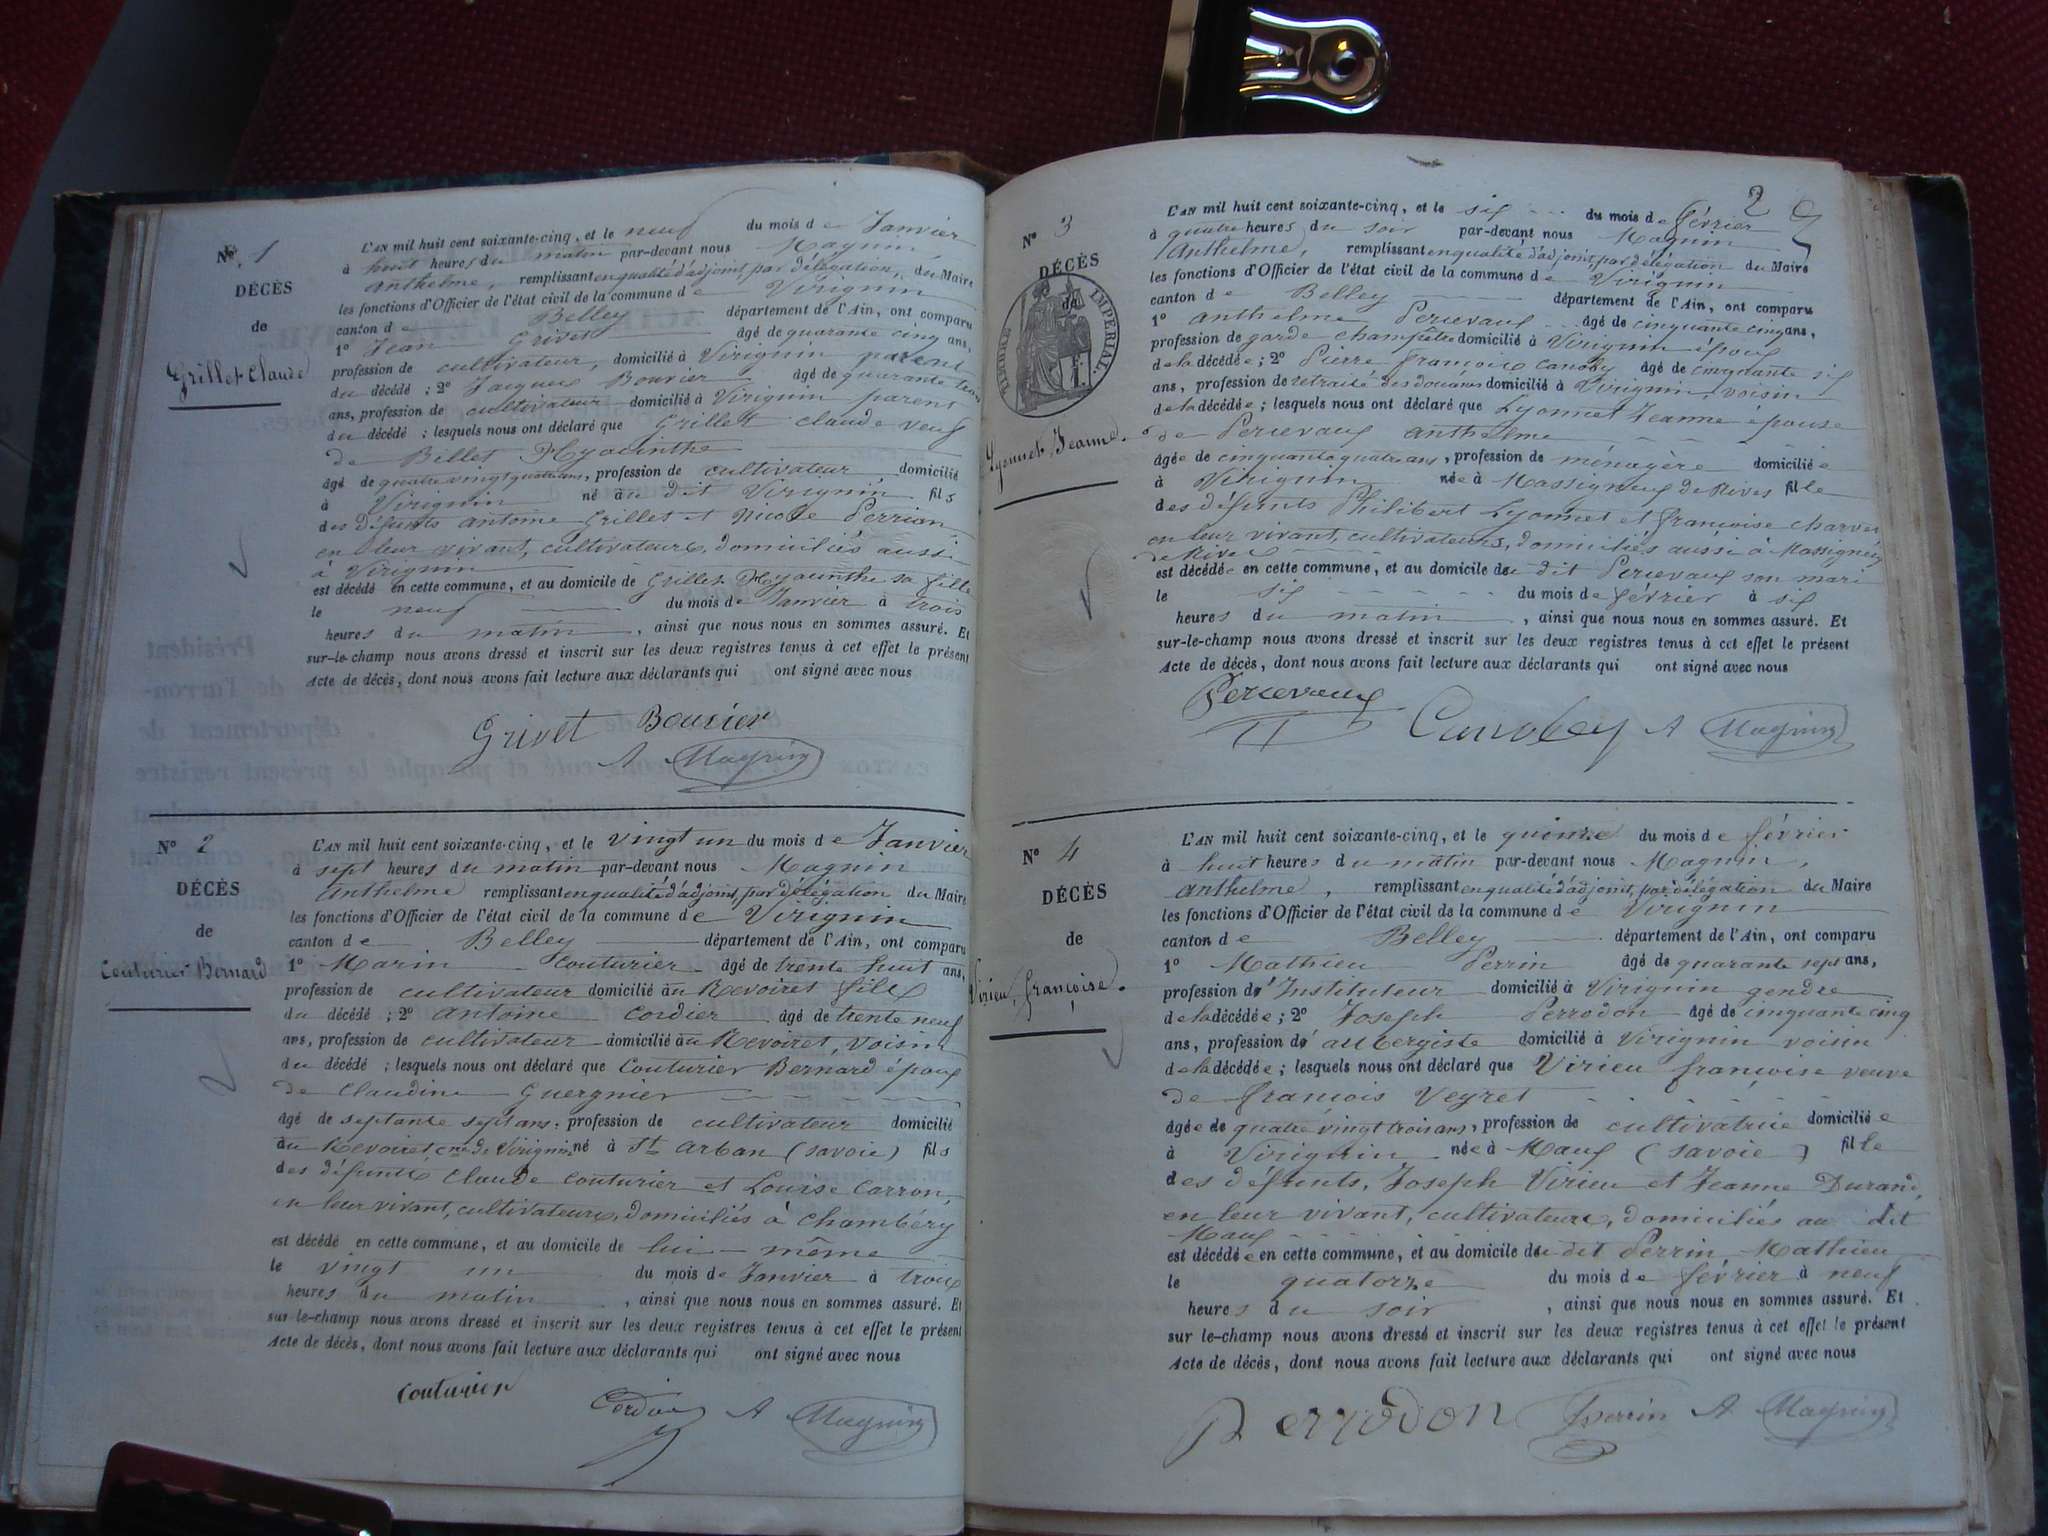 N° 1
DÉCÈS
de
Grillet Claude
L'AN mil huit cent soixante-cinq, et le neuf du mois de Janvier
à huit heures du matin par-devant nous Magnin
Anthelme, remplissant en qualité d'adjoint, par délégation, du Maire
les fonctions d'Officier de l'état civil de la commune de Virignin
canton de Belley département de l'Ain, ont comparu
1° Jean Grivet âgé de quarante cinq ans,
profession de cultivateur, domicilié à Virignin parent
du décédé ; 2° Jacques Bouvier âgé de quarante trois
ans, profession de cultivateur domicilié à Virignin parent
du décédé ; lesquels nous ont déclaré que Grillet Claude veuf
de Billet Hyacinthe
âgé de quatre vingt quatre ans, profession de cultivateur domicilié
à Virignin né au dit Virignin fils
des défunts Antoine Grillet et Nicole Perrian
en leur vivant, cultivateurs, domiciliés aussi
à Virignin
est décédé en cette commune, et au domicile de Grillet Hyacinthe sa fille
le neuf du mois de Janvier à trois
heures du matin, ainsi que nous nous en sommes assuré. Et
sur-le-champ nous avons dressé et inscrit sur les deux registres tenus à cet effet le présent
Acte de décès, dont nous avons fait lecture aux déclarants qui ont signé avec nous
Grivet Bouvier
A Magnin
N° 2
DÉCÈS
de
Couturier Bernard
L'AN mil huit cent soixante-cinq, et le vingt un du mois de Janvier
à sept heures du matin par-devant nous Magnin
Anthelme remplissant en qualité d'adjoint, par délégation du Maire
les fonctions d'Officier de l'état civil de la commune de Virignin
canton de Belley département de l'Ain, ont comparu
1° Marin Couturier âgé de trente huit ans,
profession de cultivateur domicilié au Revoiret fils
du décédé ; 2° Antoine Cordier âgé de trente neuf
ans, profession de cultivateur domicilié au Revoiret, voisin
du décédé ; lesquels nous ont déclaré que Couturier Bernard époux
de Claudine Guergnier
âgé de septante sept ans, profession de cultivateur domicilié
au Revoiret, cne de Virignin né à St Arban (Savoie) fils
des défunts Claude Couturier et Louise Carron,
en leur vivant, cultivateurs, domiciliés à Chambéry
est décédé en cette commune, et au domicile de lui-même
le vingt un du mois de Janvier à trois
heures du matin, ainsi que nous nous en sommes assuré. Et
sur-le-champ nous avons dressé et inscrit sur les deux registres tenus à cet effet le présent
Acte de décès, dont nous avons fait lecture aux déclarants qui ont signé avec nous
Couturier
Cordier A Magnin
2
N° 3
DÉCÈS
de
TIMBRE IMPÉRIAL
Lyonnet Jeanne.
L'AN mil huit cent soixante-cinq, et le six du mois de Février
à quatre heures du soir par-devant nous Magnin
Anthelme, remplissant en qualité d'adjoint, par délégation du Maire
les fonctions d'Officier de l'état civil de la commune de Virignin
canton de Belley département de l'Ain, ont comparu
1° Anthelme Percevaux âgé de cinquante cinq ans,
profession de garde champêtre domicilié à Virignin époux
de la décédée ; 2° Pierre François Canoby âgé de cinquante six
ans, profession de retraité des douanes domicilié à Virignin, voisin
de la décédée ; lesquels nous ont déclaré que Lyonnet Jeanne épouse
de Percevaux Anthelme
âgée de cinquante quatre ans, profession de ménagère domiciliée
à Virignin née à Massigneux de Rives fille
des défunts Philibert Lyonnet et Françoise Charvet
en leur vivant, cultivateurs, domiciliés aussi à Massigneux
de Rives
est décédée en cette commune, et au domicile du dit Percevaux son mari
le six du mois de février à six
heures du matin, ainsi que nous nous en sommes assuré. Et
sur-le-champ nous avons dressé et inscrit sur les deux registres tenus à cet effet le présent
Acte de décès, dont nous avons fait lecture aux déclarants qui ont signé avec nous
Percevaux
Canobey A Magnin
N° 4
DÉCÈS
de
Virieu, françoise.
L'AN mil huit cent soixante-cinq, et le quinze du mois de février
à huit heures du matin par-devant nous Magnin,
Anthelme, remplissant en qualité d'adjoint, par délégation du Maire
les fonctions d'Officier de l'état civil de la commune de Virignin
canton de Belley département de l'Ain, ont comparu
1° Mathieu Perrin âgé de quarante sept ans,
profession d'Instituteur domicilié à Virignin gendre
de la décédée ; 2° Joseph Perrodon âgé de cinquante cinq
ans, profession d'aubergiste domicilié à Virignin voisin
de la décédée ; lesquels nous ont déclaré que Virieu françoise veuve
de françois Veyret
âgée de quatre vingt trois ans, profession de cultivatrice domiciliée
à Virignin née à Naux (Savoie) fille
des défunts, Joseph Virieu et Jeanne Durand,
en leur vivant, cultivateurs, domiciliés au dit
Naux
est décédée en cette commune, et au domicile du dit Perrin Mathieu
le quatorze du mois de février à neuf
heures du soir, ainsi que nous nous en sommes assuré. Et
sur le-champ nous avons dressé et inscrit sur les deux registres tenus à cet effet le présent
Acte de décès, dont nous avons fait lecture aux déclarants qui ont signé avec nous
Perrodon Perrin A Magnin